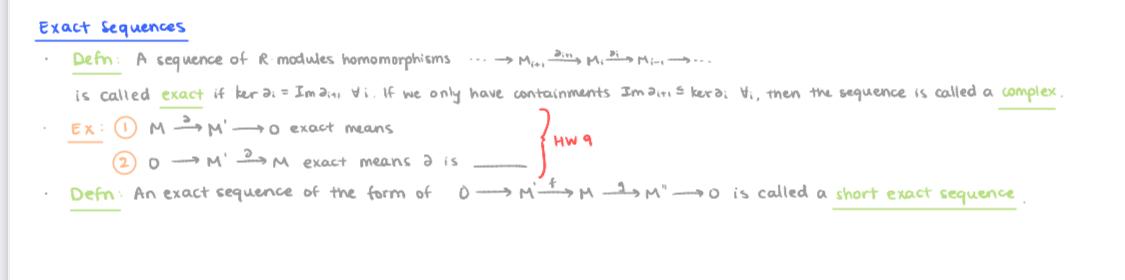 Exact Sequences
· Defn: A sequence of R modules homomorphisms ··· → Mᵢ₊₁ —∂ᵢ₊₁→ Mᵢ —∂ᵢ→ Mᵢ₋₁ → ···
is called exact if ker ∂ᵢ = Im ∂ᵢ₊₁ ∀i. If we only have containments Im ∂ᵢ₊₁ ⊆ ker ∂ᵢ ∀i, then the sequence is called a complex.
· Ex: ① M —∂→ M' → 0 exact means
② 0 → M' —∂→ M exact means ∂ is ____
HW 9
· Defn: An exact sequence of the form of 0 → M' —f→ M —g→ M" → 0 is called a short exact sequence.